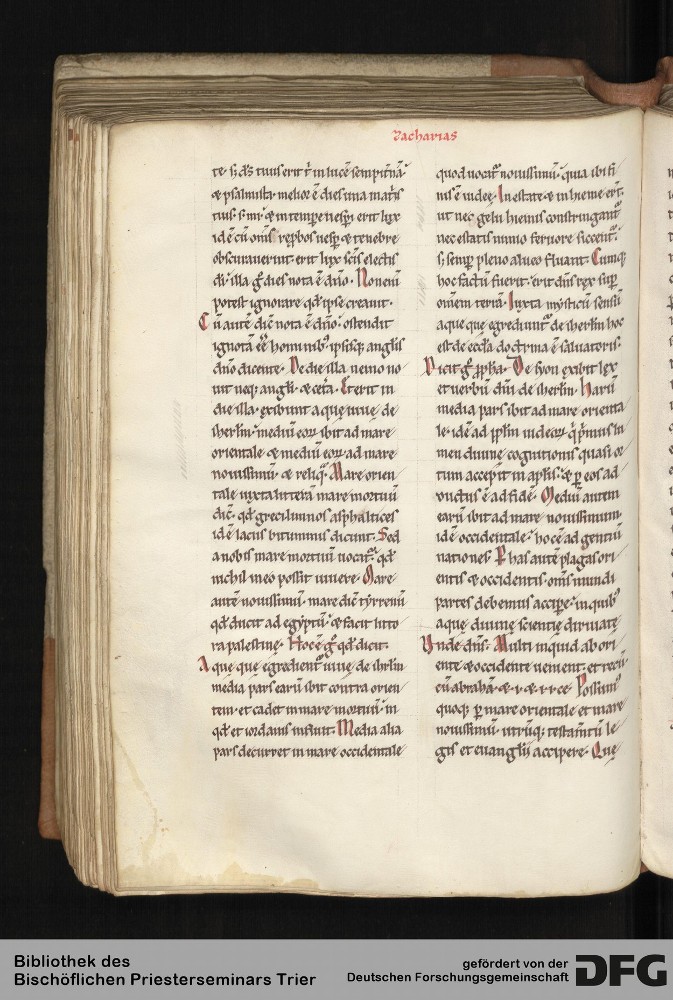 Zacharias
te. s; d͞s tuus erit t͛ in lucē sempit͛nā.
⁊ psalmista. melior ē dies una in at͛iis
tuis. s; m͛. ⁊ in tempe uesp͛i erit lux
id ē cū om͞s rep͛bos uesp͛ ⁊ tenebre
obscurauerint. erit lux sc͞is electis
di. illa g͛ dies nota ē dn͞o. Non eni͞
potest ignorare qd̄ ipse creauit.
Cū autē diē nota ē dn͞o. ostendit
ignotā ee͞ hominib; ipsisq; angl͞is
dn͞o dicente. De die illa nemo no
uit neq; angl͞i. ⁊ cet͛a. Et erit in
die illa. exibunt aquę uiuę de
ih͞erl͞m. mediū eoꝝ ibit ad mare
orientale ⁊ mediū eoꝝ ad mare
nouissimū. ⁊ reliq͛. Mare orien
tale iuxta litterā mare mortuū
dic̄. qd̄ greci limnos asphaltices
id ē lacus bituminis dicunt. Sed
a nobis mare mortuū uocat͛. qd̄
nichil in eo possit uiuere. Mare
autē nouissimū. mare dic̄ tyrrenū
qd̄ ducit ad egyptū. ⁊ facit litto
ra palestinę. Hoc ē g͛ qd̄ dicit.
Aquę quę egredient͛ uiuę de ih͞rl͞m
media pars earū ibit contra orien
tem. et cadet in mare mortuū. in
qd̄ et iordanis influit. Media alia
pars decurret in mare occidentale
quod uocat͛ nouissimū. quia ibi fi
nis ē iudeę. In estate ⁊ in hieme er͛t.
ut nec gelu hiemis constringant͛
nec estatis nimio feruore siccent͛.
s; semp͛ pleno alueo fluant. Cumq;
hoc factū fuerit. erit dn͞s rex sup͛
om͞em terrā. Iuxta mysticū sensū
aquę que egrediunt͛ de iherl͞m hoc
est de eccl͞a doctrina ē saluatoris.
Dicit g͛ pp͞ha. De syon exibit lex
et uerbū dn͞i de iherl͞m. Harū
media pars ibit ad mare orienta
le. id ē ad pp͞lm iudeoꝝ q͛ p͛mus lu
men diuine cognitionis quasi or
tum accepit in ap͞lis. ⁊ p eos ad
ductus ē ad fidē. Mediū autem
earū ibit ad mare nouissimum.
id ē occidentale. hoc ē ad gentiū
nationes. P has autē plagas ori
entis ⁊ occidentis. om͞s mundi
partes debemus accipe. in quib;
aquę diuinę scientię diriuatę
Unde dn͞s. Multi inquid ab ori
ente ⁊ occidente uenient. et recū
cū abrahā. ⁊ .i. ⁊ .i. r. c͞e. Possum;
quoq; p mare orientale et mare
nouissimū. utrūq; testam͞tū le
gis et euangl͞ii accipere. Que
Bibliothek des
Bischöflichen Priesterseminars Trier
gefördert von der
Deutschen Forschungsgemeinschaft
DFG